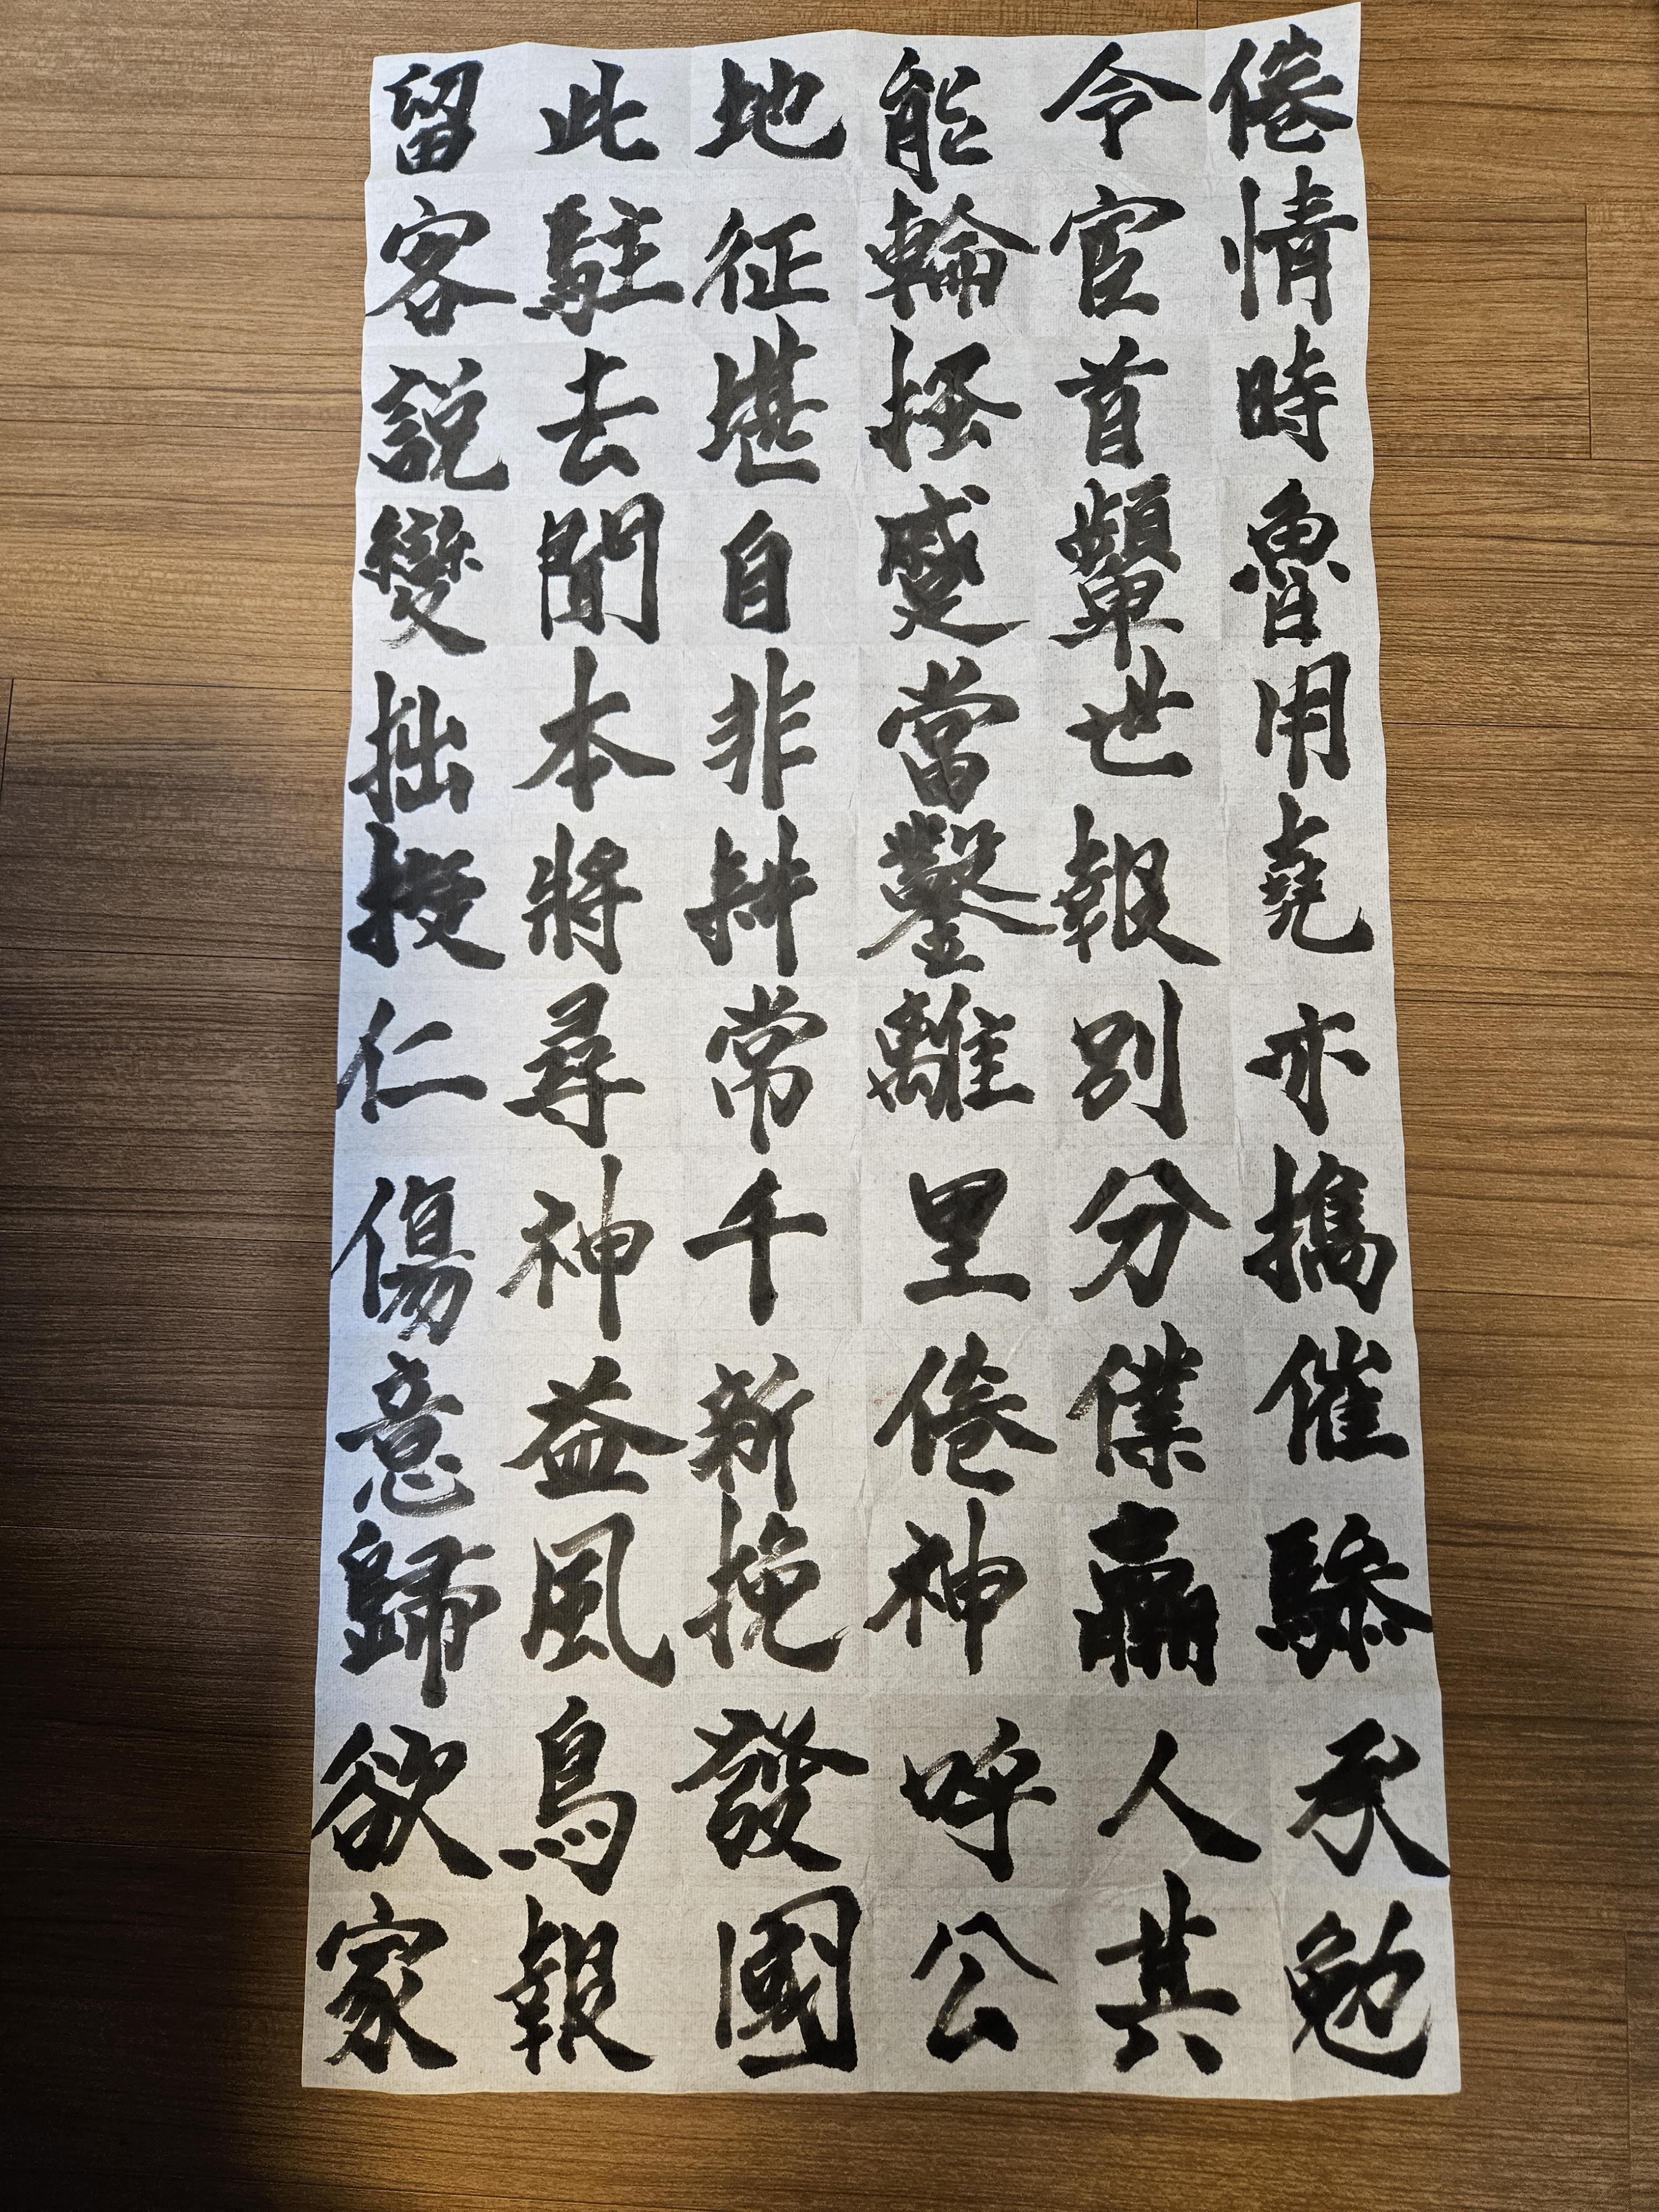 倦情時魯用堯亦攜催驂承勉
令宦首顰世報別分僕羸人其
能輪搔蹙當鑿離里倦神呼公
地征堪自非常千新挽發國
此駐去聞本將尋神益風鳥報
留客說變拙仁傷意歸欲家